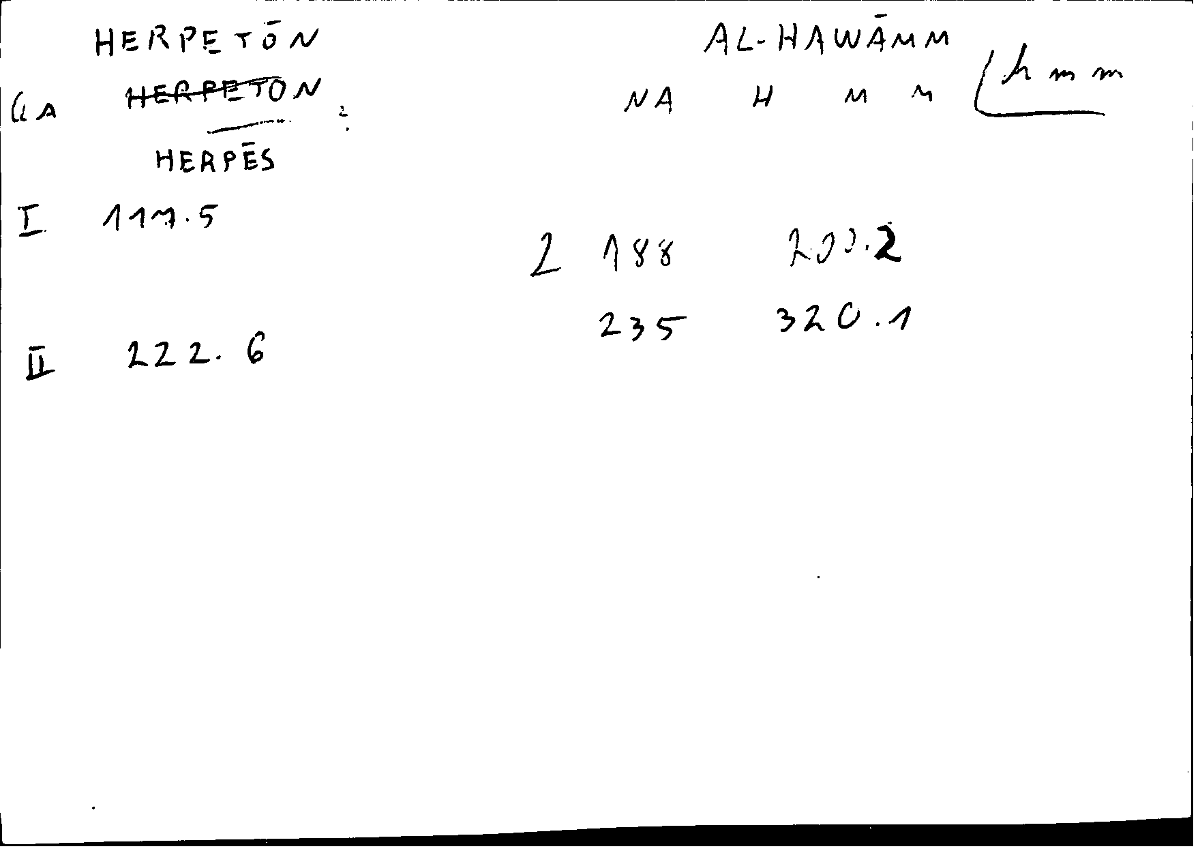 HERPETŌN AL-HAWĀMM
GA HERPETON NA H M M hmm
HERPĒS
I 117.5
2 188 200.2
235 320.1
II 222.6